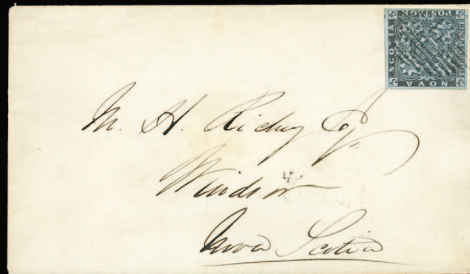 NOVA
SCOTIA
POSTAGE
M. H. Richey Esq.
Windsor
Nova Scotia